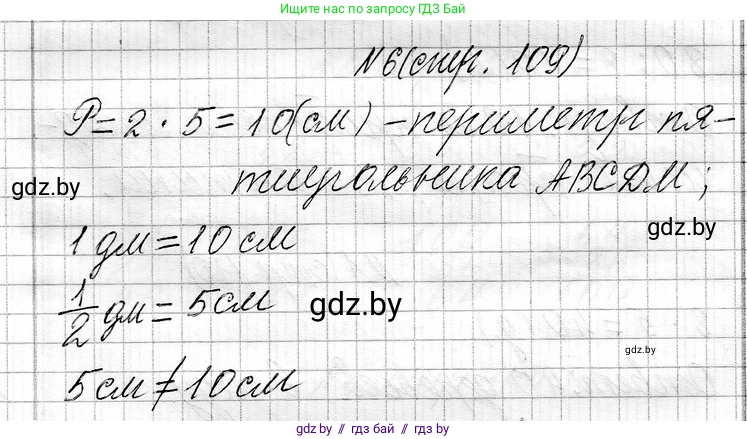 Ищите нас по запросу ГДЗ Бай
№6(стр. 109)
P=2·5=10(см) –периметр пя-
тиугольника ABCDM;
gdz.by
gdz.by
1 дм=10см
1/2 дм= 5см
gdz.by
gdz.by
5см≠10см
gdz.by // гдз бай // gdz by